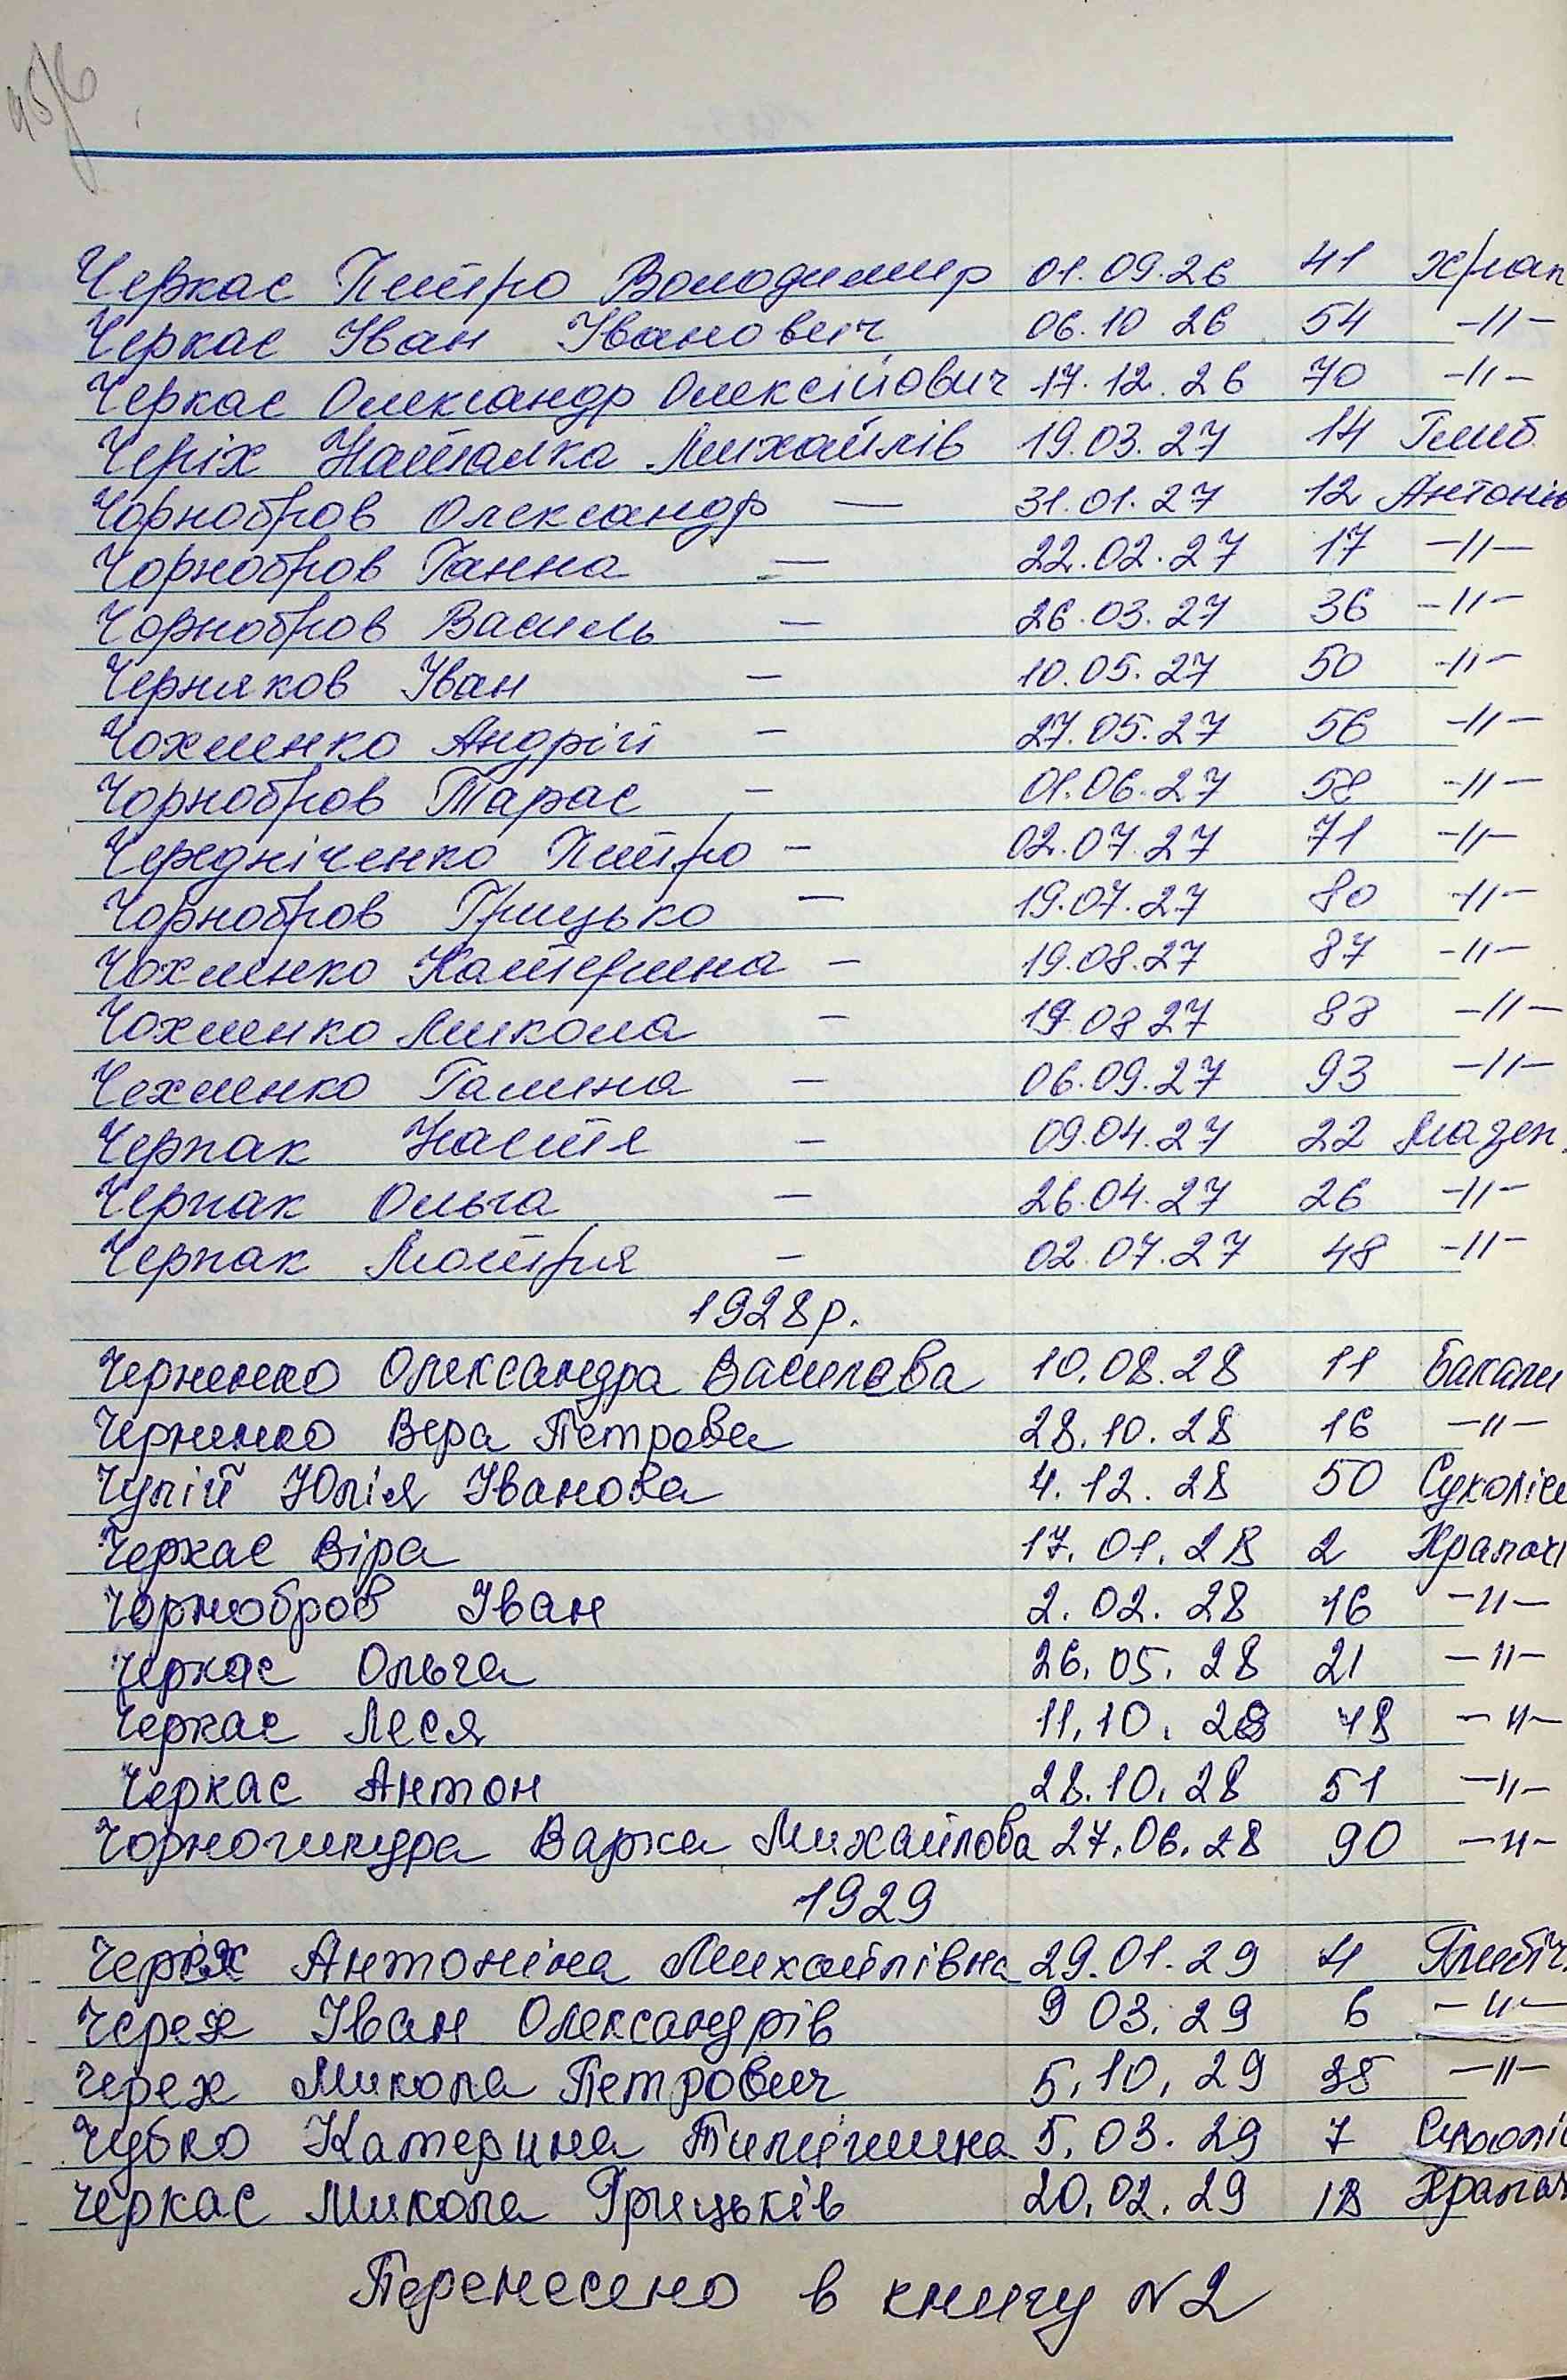 Черкас Петро Володимир 01.09.26 41 Храп
Черкас Іван Іванович 06.10 26 54 -//-
Черкас Олександр Олексійович 17.12.26 70 -//-
Черіх Наталка Михайлів 19.03.27 14 Глиб.
Чорнобров Олександр — 31.01.27 12 Антонів
Чорнобров Ганна — 22.02.27 17 -//-
Чорнобров Василь — 26.03.27 36 -//-
Черняков Іван — 10.05.27 50 -//-
Чохленко Андрій — 27.05.27 56 -//-
Чорнобров Тарас — 01.06.27 58 -//-
Чередніченко Петро — 02.07.27 71 -//-
Чорнобров Грицько — 19.07.27 80 -//-
Чохленко Катерина — 19.08.27 87 -//-
Чохленко Микола — 19.08 27 88 -//-
Чехленко Галина — 06.09.27 93 -//-
Черпак Настя — 09.04.27 22 Мазеп.
Черпак Ольга — 26.04.27 26 -//-
Черпак Мотря — 02.07.27 48 -//-
1928р.
Черненко Олександра Василева 10.08.28 11 Бакали
Черненко Вера Петрова 28.10.28 16 -//-
Чупій Юлія Іванова 4.12.28 50 Сухоліс
Черкас Віра 17.01.28 2 Храпач
Чорнобров Іван 2.02.28 16 -//-
Черкас Ольга 26.05.28 21 -//-
Черкас Леся 11.10.28 48 -//-
Черкас Антон 28.10.28 51 -//-
Варка Михайлова 27.06.28 90 -//-
1929
Черіх Антоніна Михайлівна 29.01.29 4 Глибіч.
Черех Іван Олександрів 9 03.29 6 -//-
Черех Микола Петрович 5.10.29 35 -//-
Чубко Катерина 5.03.29 7
Черкас Микола Грицьків 20.02.29 18 Храпач
Перенесено в книгу N2